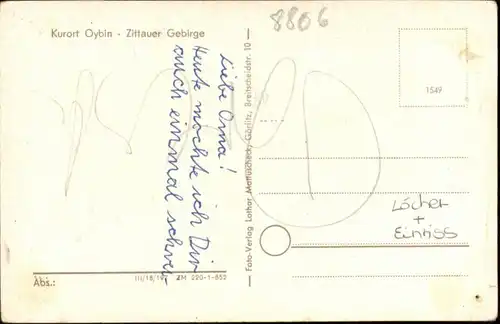 8806
Kurort Oybin - Zittauer Gebirge
1549
Liebe Oma!
Heute möchte ich Dir
auch einmal schrei-
Foto-Verlag Lothar Mattuscheck, Görlitz, Breitscheidstr. 10
Löcher
+
Einriss
Abs.:
III/18/197 ZM 220-1-852